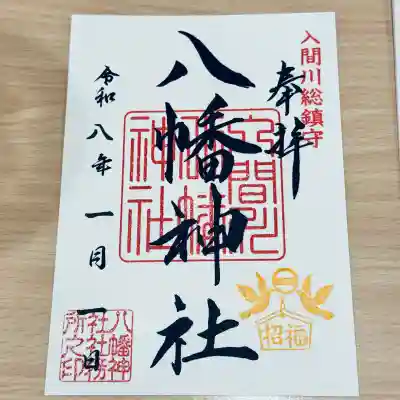 入間川総鎮守
奉拝
八幡神社
入間川
八幡
神社
招福
令和八年一月一日
八幡神
社社務
所之印